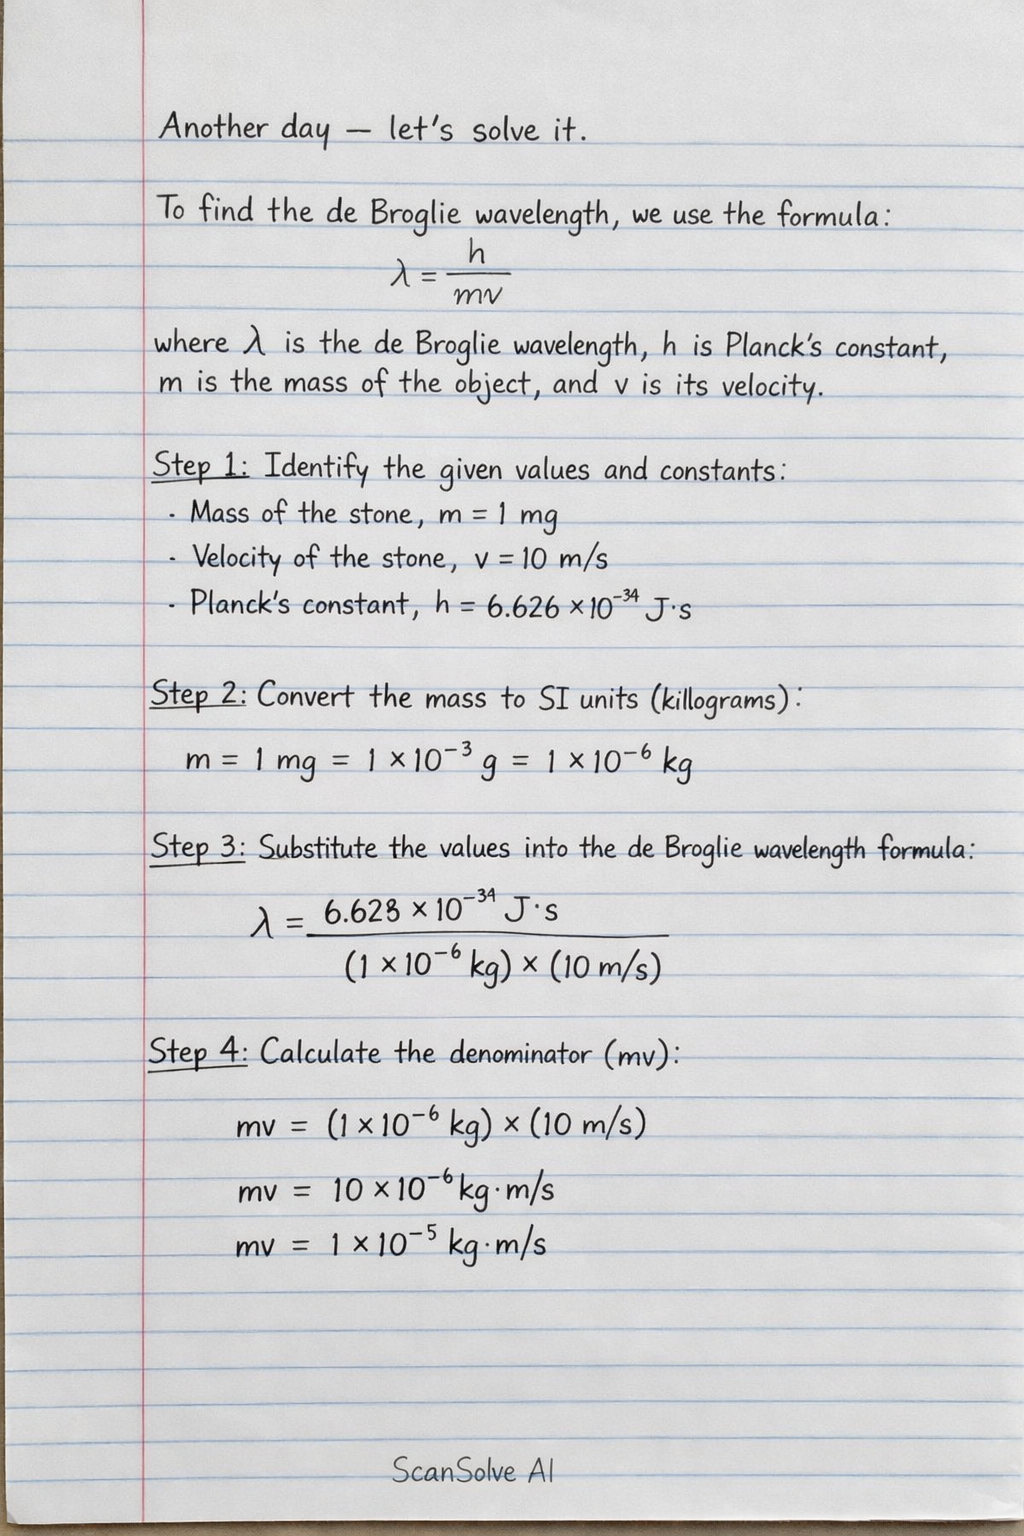 Another day — let's solve it.
To find the de Broglie wavelength, we use the formula:
λ = h / mv
where λ is the de Broglie wavelength, h is Planck's constant,
m is the mass of the object, and v is its velocity.
Step 1: Identify the given values and constants:
· Mass of the stone, m = 1 mg
· Velocity of the stone, v = 10 m/s
· Planck's constant, h = 6.626 × 10⁻³⁴ J·s
Step 2: Convert the mass to SI units (killograms):
m = 1 mg = 1 × 10⁻³ g = 1 × 10⁻⁶ kg
Step 3: Substitute the values into the de Broglie wavelength formula:
λ = 6.628 × 10⁻³⁴ J·s / (1 × 10⁻⁶ kg) × (10 m/s)
Step 4: Calculate the denominator (mv):
mv = (1 × 10⁻⁶ kg) × (10 m/s)
mv = 10 × 10⁻⁶ kg·m/s
mv = 1 × 10⁻⁵ kg·m/s
ScanSolve AI